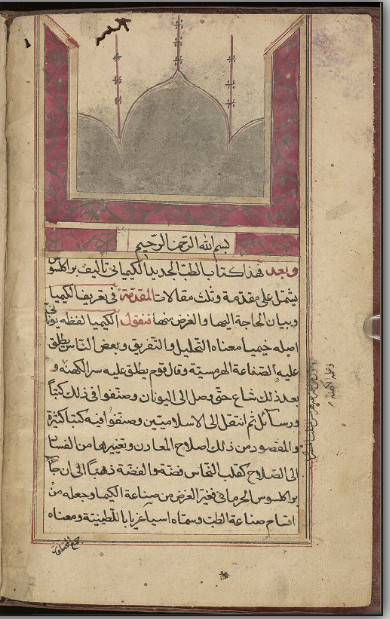 بسم الله الرحمن الرحيم
وبعد فهذا كتاب الطب الجديد الكيميائي تأليف براكلسوس
يشتمل على مقدمة وثلث مقالات المقدمة في تعريف الكيميا
وبيان الحاجة اليها والغرض منها فنقول الكيميا لفظه يونا
اصله خيميا معناه التحليل والتفريق وبعض الناس يطلق
عليه الصناعة الهرمسية وقال قوم يطلق عليه سر الكهنة و
بعد ذلك شاع حتى وصل الى اليونان وصنفوا في ذلك كتبا
ورسائل ثم انتقل الى الاسلاميين وصنفوا فيه كتبا كثيرة
والمقصود من ذلك اصلاح المعادن وتغييرها من الفساد
الى الصلاح كقلب النحاس فضة والفضة ذهبا الى ان جاء
براكلسوس الجرماني فغير الغرض من صناعة الكيميا وجعله من
اقسام صناعة الطب وسماه اسباغريا باللطينية ومعناه